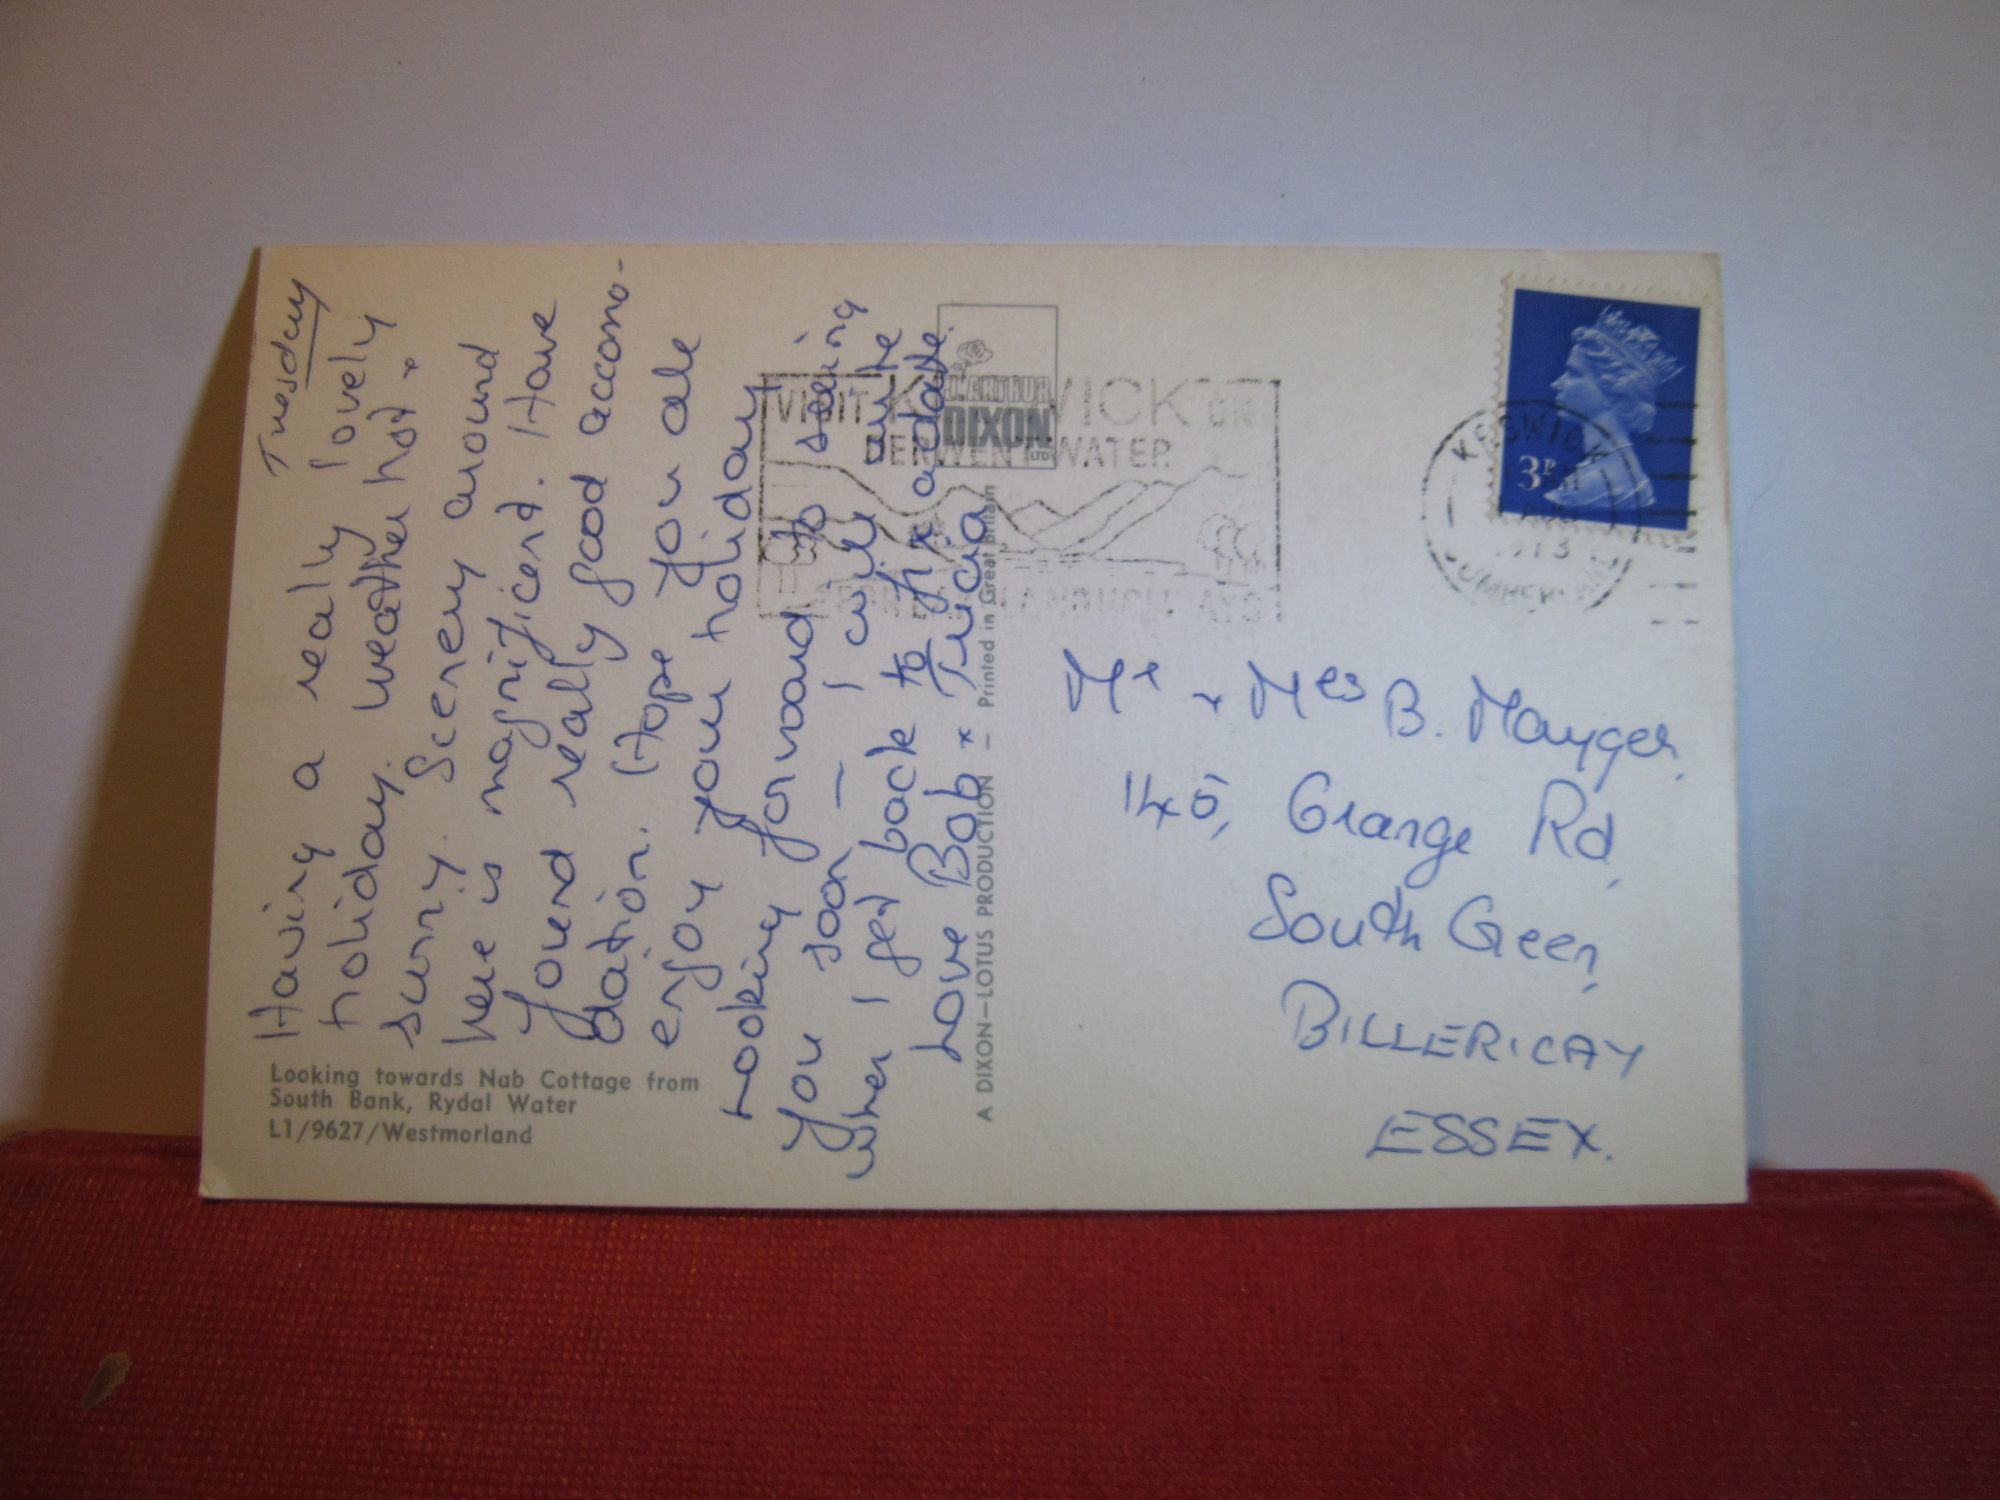 Tuesday
Having a really lovely
holiday. Weather hot +
sunny. Scenery around
here is magnificent. Have
found really good accomo-
dation. Hope you are
enjoy your holiday
Looking forward to seeing
you soon — I will write
when I get back to fix a date.
Love Bob + Tricia
Looking towards Nab Cottage from
South Bank, Rydal Water
L1/9627/Westmorland
A DIXON—LOTUS PRODUCTION — Printed in Great Britain
J. ARTHUR
DIXON
LTD
VISIT KESWICK ON
DERWENTWATER
KESWICK
1973
CUMBERLAND
3P
Mr + Mrs B. Mayger.
145, Grange Rd,
South Green,
BILLERICAY
ESSEX.